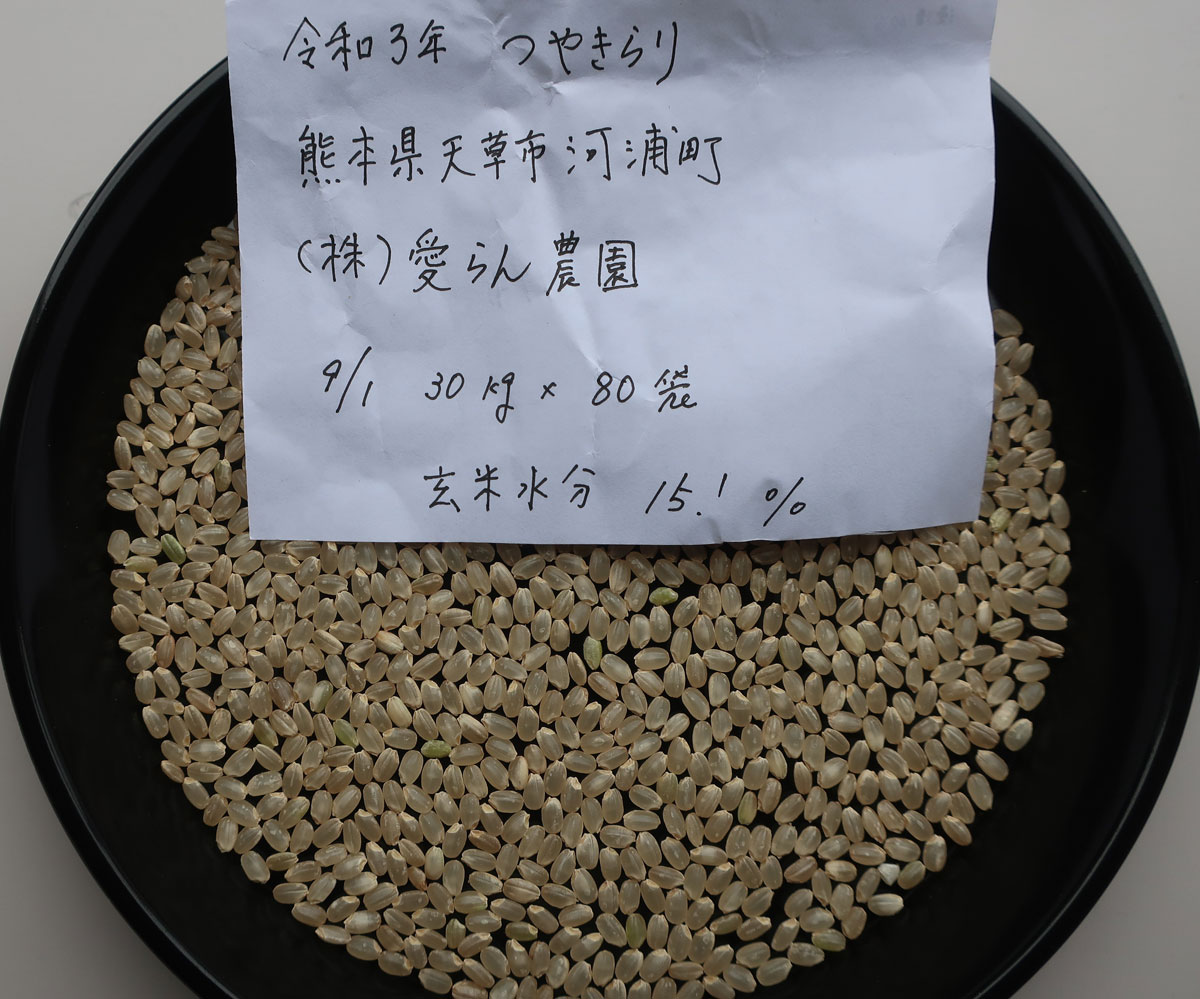 令和3年 つやきらり
熊本県天草市河浦町
(株)愛らん農園
9/1 30kg×80袋
玄米水分 15.1 %